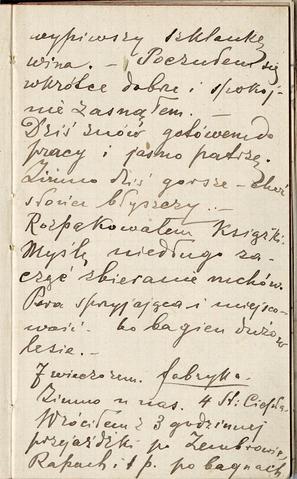 wypiwszy szklankę
wina. – Poczułem się
wkrótce dobrze i spokoj-
nie zasnąłem. –
Dziś znów gotówem do
pracy i jasno patrzę.
Zimno dziś gorsze – choć
słońce błyszczy. –
Rozpakowałem książki.
Myślę niedługo za-
cząć zbieranie mchów.
Pora sprzyjająca i miejsco-
wość bo bagien dużo w
lesie. –
7 wieczorem. fabryka.
Zimno u nas. 4 St. Ciepła.
Wróciłem z 3 godzinnej
przejażdżki po Zembrowie,
Rapach i t p. po bagnach,